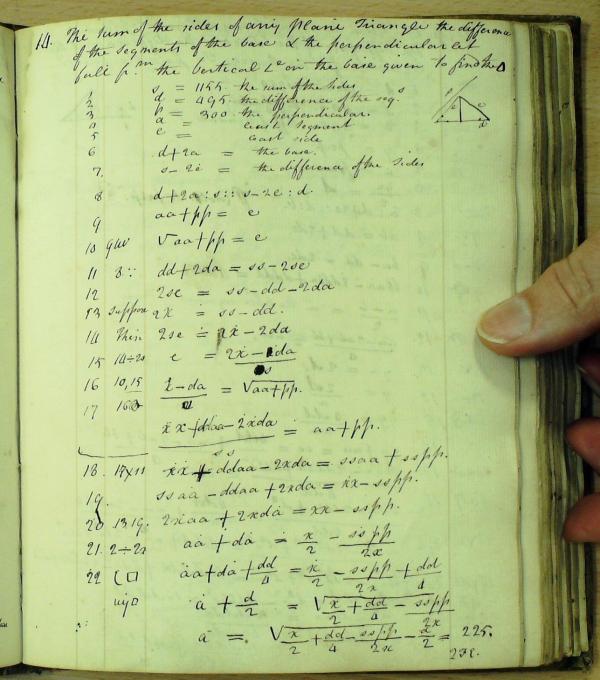 14. The sum of the sides of any plane Triangle the difference
of the segments of the base & the perpendicular let
fall fr.m the Vertical Le on the base given to find the Δ
1 s = 1155 the sum of the sides
2 d = 495 the difference of the seg.s
3 p = 300 the perpendicular
4 a = least segment
5 e = least side
6 d+2a = the base.
7. s-2e = the difference of the sides
8 d+2a : s :: s-2e : d.
9 aa+pp = e
10 9uu √aa+pp = e
11 8:: dd+2da = ss-2se
12 2se = ss-dd-2da
13 suppose 2x = ss-dd.
14 Then 2se = 2x-2da
15 14÷2s e = 2x-2da / s
16 10,15 x-da / s = √aa+pp.
17 16 xx+ddaa-2xda / ss = aa+pp.
18. 17×ss xx+ddaa-2xda = ssaa+sspp.
19. ssaa-ddaa+2xda = xx-sspp.
20 13 19. 2xaa+2xda = xx-sspp.
21. 2÷2x aa+da = x/2 - sspp/2x
22 C□ aa+da+dd/4 = x/2 - sspp/2x + dd/4
a + d/2 = √x/2 + dd/4 - sspp/2x
a = √x/2 + dd/4 - sspp/2x - d/2 = 225.